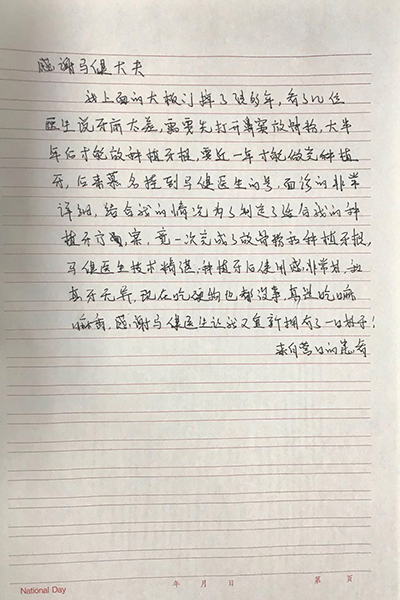 感谢马健大夫
我上面的大板门掉了很多年，看了几位
医生说牙床太差，需要先打开鼻窦放骨粉，大半
年后才能放种植牙根，要近一年才能做完种植
牙，后来慕名挂到马健医生的号，面诊的非常
详细，结合我的情况为了制定了适合我的种
植牙方案，竟一次完成了放骨粉和种植牙根，
马健医生技术精湛，种植牙后使用感非常好，和
真牙无异，现在吃硬物也都没事真是吃嘛
嘛香，感谢马健医生让我又重新拥有了一口好牙！
来自营口的患者
National Day
年 月 日
第 页